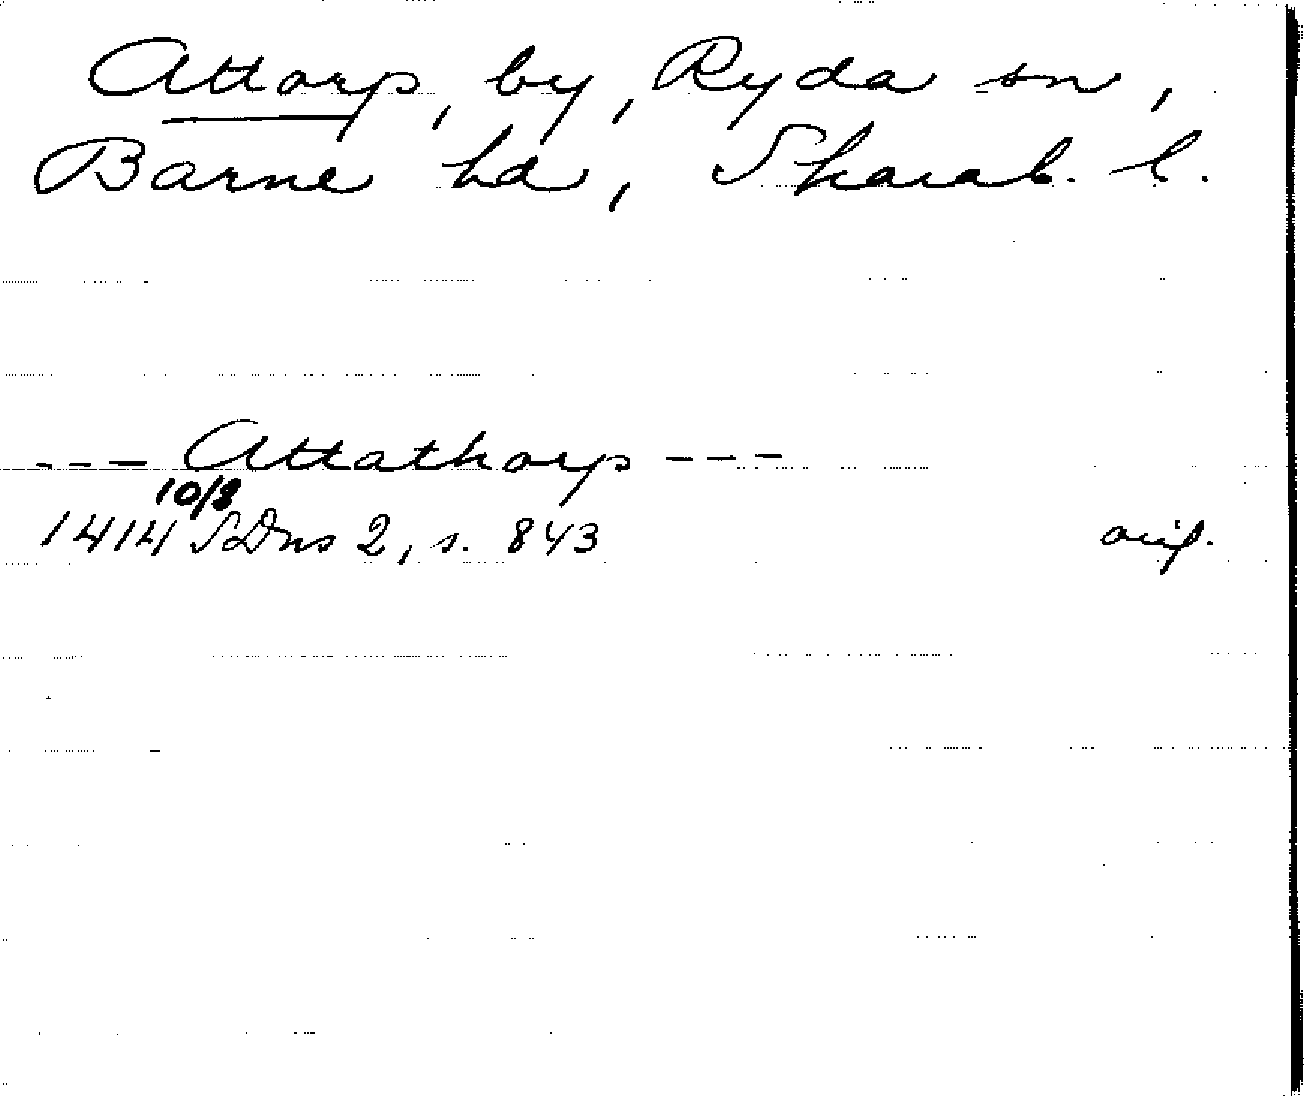 Attorp, by, Ryda sn,
Barne hd, Skarab. l.
--- Attathorp ---
10/8
1414 SDns 2, s. 843 orig.